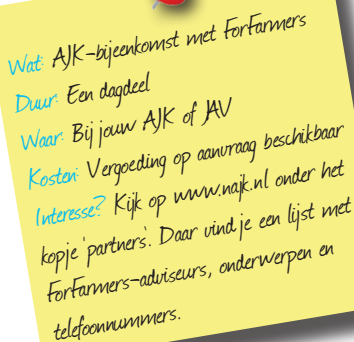 Wat: AJK-bijeenkomst met ForFarmers
Duur: Een dagdeel
Waar: Bij jouw AJK of JAV
Kosten: Vergoeding op aanvraag beschikbaar
Interesse? Kijk op www.najk.nl onder het
kopje 'partners'. Daar vind je een lijst met
ForFarmers-adviseurs, onderwerpen en
telefoonnummers.